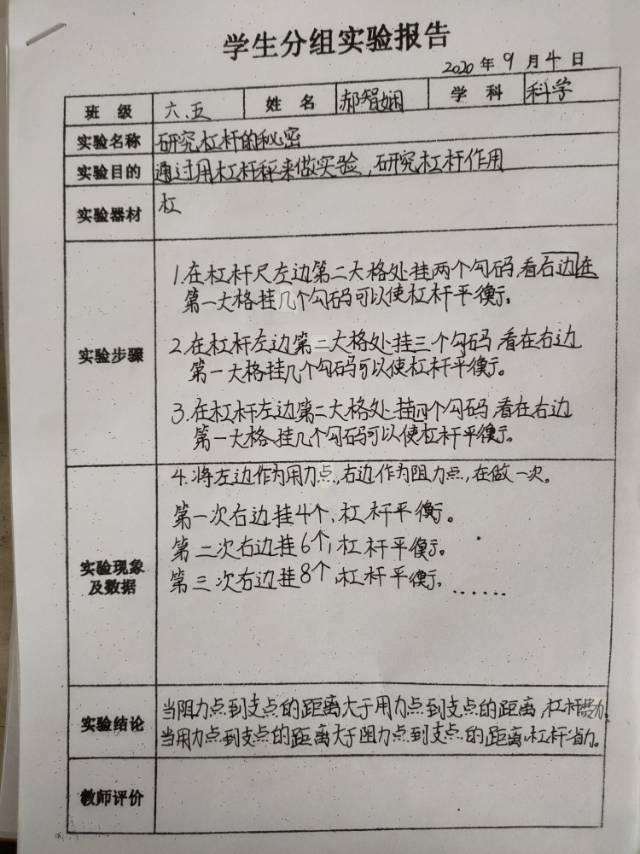 学生分组实验报告
2020年9月4日
班级 六.五 姓名 郝智娴 学科 科学
实验名称 研究杠杆的秘密
实验目的 通过用杠杆秤来做实验,研究杠杆作用
实验器材 杠
1.在杠杆尺左边第二大格处挂两个勾码,看右边在
第一大格挂几个勾码可以使杠杆平衡。
实验步骤
2.在杠杆左边第二大格处挂三个勾码,看在右边
第一大格挂几个勾码可以使杠杆平衡。
3.在杠杆左边第二大格处挂四个勾码,看在右边
第一大格挂几个勾码可以使杠杆平衡。
4.将左边作为用力点,右边作为阻力点,在做一次。
实验现象
及数据
第一次右边挂4个,杠杆平衡。
第二次右边挂6个,杠杆平衡。
第三次右边挂8个,杠杆平衡。......
实验结论
当阻力点到支点的距离大于用力点到支点的距离,杠杆费力
当用力点到支点的距离大于阻力点到支点的距离,杠杆省力。
教师评价